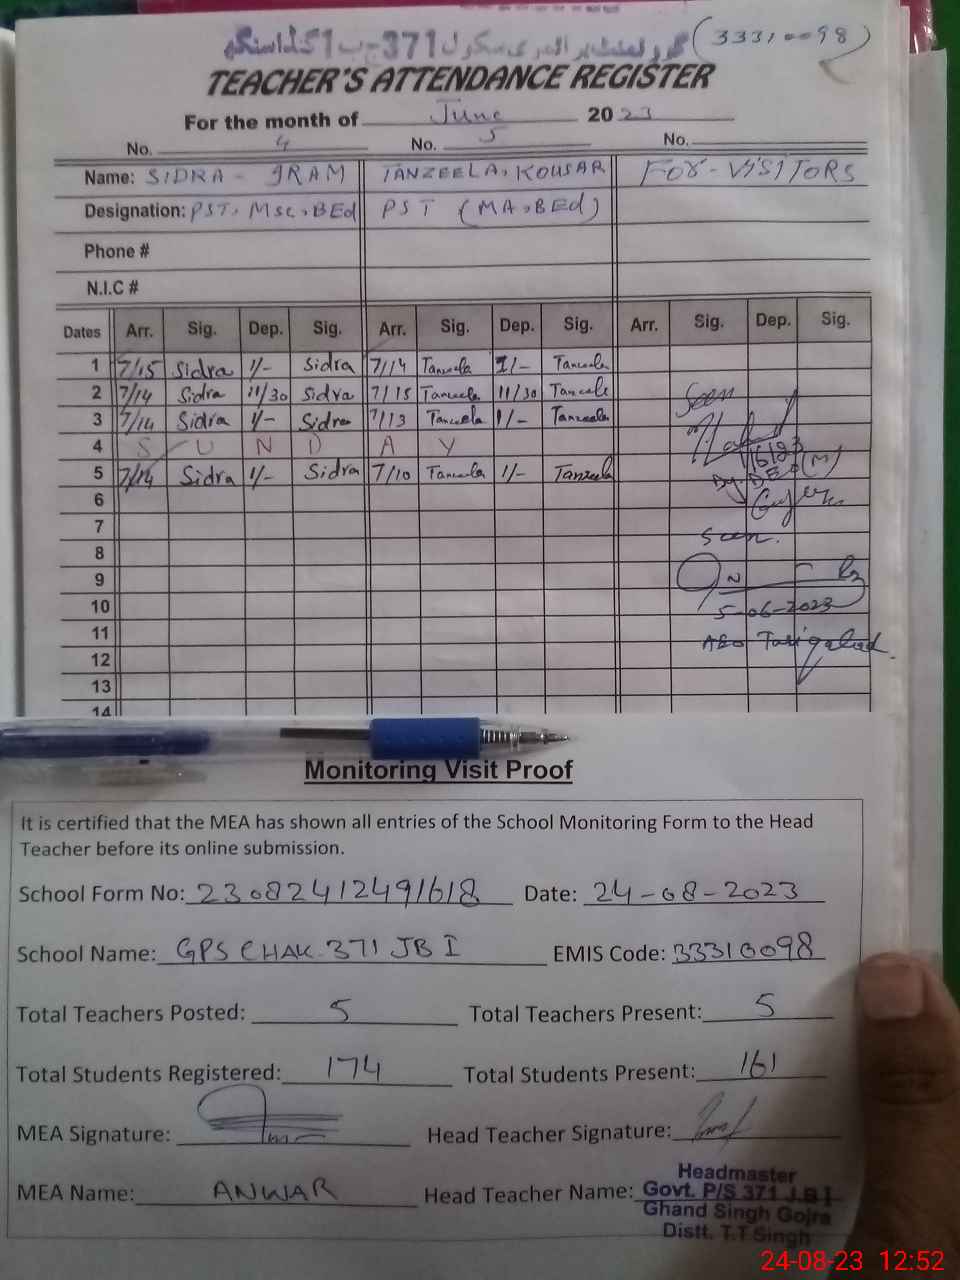 گورنمنٹ پرائمری سکول 371 ج ب 1 گھنڈا سنگھ (33310098)
TEACHER'S ATTENDANCE REGISTER
For the month of June 2023
No. 4 No. 5 No.
Name: SIDRA - IRAM TANZEELA, KOUSAR FOR - VISITORS
Designation: PST, Msc, BEd PST (MA, BEd)
Phone #
N.I.C #
Dates Arr. Sig. Dep. Sig. Arr. Sig. Dep. Sig. Arr. Sig. Dep. Sig.
1 7/15 Sidra 1/- Sidra 7/14 Tanzeela 1/- Tanzeela
2 7/14 Sidra 11/30 Sidra 7/15 Tanzeela 11/30 Tanzeela Seen
3 7/14 Sidra 1/- Sidra 7/13 Tanzeela 1/- Tanzeela
4 S U N D A Y
5 7/14 Sidra 1/- Sidra 7/10 Tanzeela 1/- Tanzeela
Dy. DEO (M)
6
7
Seen.
8
9
10 5-06-2023
11 AEO
12
13
14
Monitoring Visit Proof
It is certified that the MEA has shown all entries of the School Monitoring Form to the Head
Teacher before its online submission.
School Form No: 23082412491618 Date: 24-08-2023
School Name: GPS CHAK. 371 JB I EMIS Code: 33310098
Total Teachers Posted: 5 Total Teachers Present: 5
Total Students Registered: 174 Total Students Present: 161
MEA Signature: Head Teacher Signature:
MEA Name: ANWAR Head Teacher Name:
Headmaster
Govt. P/S 371 J.B I
Ghand Singh Gojra
Distt. T.T Singh
24-08-23 12:52